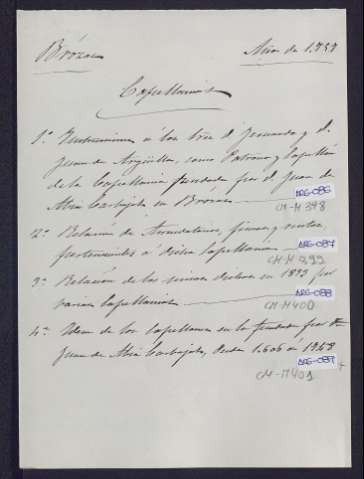 Brozas Año de 1.737
Capellanías
1º Instrucciones á los Sres. D. Fernando y D.
Juan de Argüello, como Patrono y Capellán
de la Capellanía fundada por D. Juan de
Abia Carbajal, en Brozas
ARG-086
CM-M 398
2º Relación de Arrendatarios, fincas y rentas
pertenecientes á dicha Capellanía
ARG-087
CM-M 399
3º Relación de las mismas en 1893 por
varias Capellanías
ARG-088
CM-M 400
4º Idem de los Capellanes en la fundada por D.
Juan de Abia Carbajal, desde 1.606 á 1948
ARG-089
CM-M 401